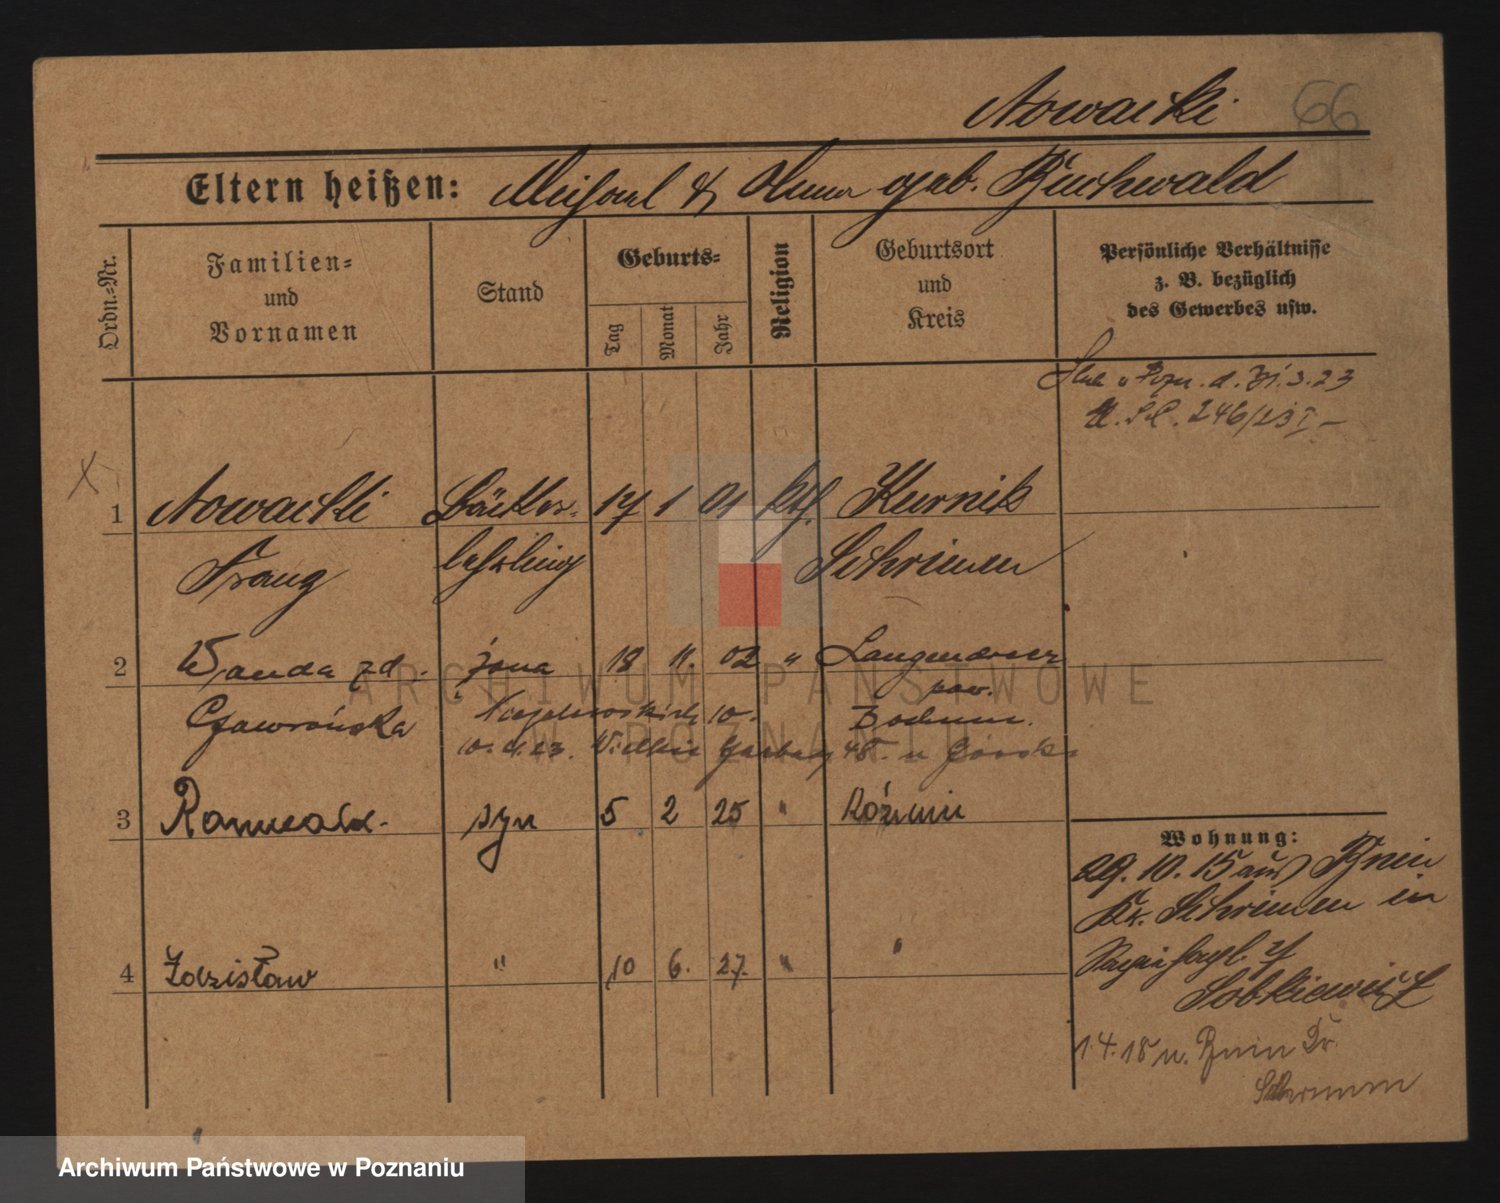 Nowacki 66
Eltern heißen: Michael & Anna geb. Buchwald
Ordn.-Nr.
Familien-
und
Vornamen
Stand
Geburts-
Tag
Monat
Jahr
Religion
Geburtsort
und
Kreis
Persönliche Verhältnisse
z. B. bezüglich
des Gewerbes usw.
246/23 I
X
1 Nowacki Bäcker- 17 1 01 kth. Kurnik
Franz lehrling Schrimm
2 Wanda zd. żona 18 11. 02 "
pow.
Gawrońska 10. Bochum.
10.4.23. Wielkie Garbary 48. u Górski
3 Romuald. syn 5 2 25 " Poznań
4 Zdzisław " 10 6. 27. " "
Wohnung:
29. 10. 15 aus Bnin
Kr. Schrimm in
Sobkiewicz
1.4.18 n. Bnin Kr.
Schrimm
ARCHIWUM PAŃSTWOWE
W POZNANIU
Archiwum Państwowe w Poznaniu